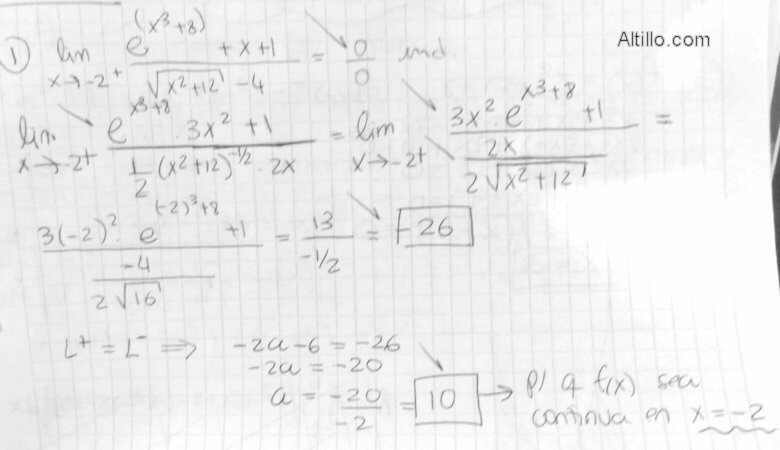 Altillo.com
① lim x→-2⁺ (e^(x³+8) + x+1) / (√(x²+12) -4) = 0/0 ind.
lim x→-2⁺ (e^(x³+8) · 3x² +1) / (1/2 (x²+12)^(-1/2) · 2x) = lim x→-2⁺ (3x² · e^(x³+8) +1) / (2x / (2√(x²+12))) =
(3(-2)² · e^((-2)³+8) +1) / (-4 / (2√16)) = 13 / (-1/2) = -26
L⁺ = L⁻ ⟹ -2a-6 = -26
-2a = -20
a = -20/-2 = 10 → p/ q f(x) sea
continua en x = -2